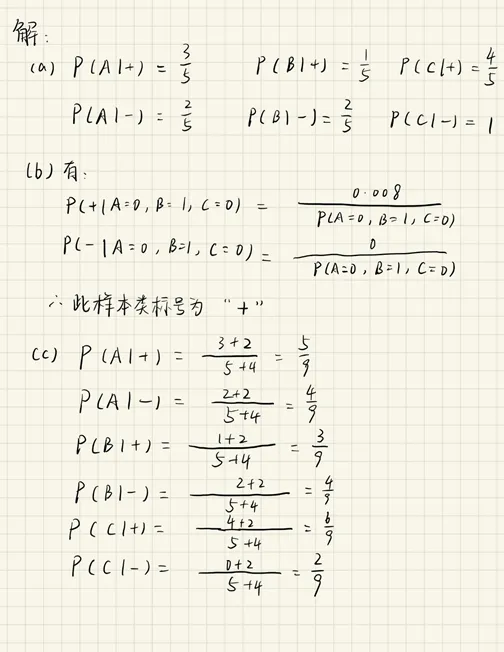 解:
(a) P(A|+) = 3/5 P(B|+) = 1/5 P(C|+) = 4/5
P(A|-) = 2/5 P(B|-) = 2/5 P(C|-) = 1
(b) 有:
P(+|A=0, B=1, C=0) = 0.008/P(A=0, B=1, C=0)
P(-|A=0, B=1, C=0) = 0/P(A=0, B=1, C=0)
∴ 此样本类标号为 "+"
(c) P(A|+) = 3+2/5+4 = 5/9
P(A|-) = 2+2/5+4 = 4/9
P(B|+) = 1+2/5+4 = 3/9
P(B|-) = 2+2/5+4 = 4/9
P(C|+) = 4+2/5+4 = 6/9
P(C|-) = 0+2/5+4 = 2/9